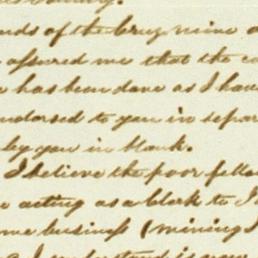 County.
ands of the Cruz mine
assured me that the co
has been done as I have
endorsed to you in separ
by you in blank.
I believe the poor fello
acting as a clerk to
me business (mining I
I understand is now